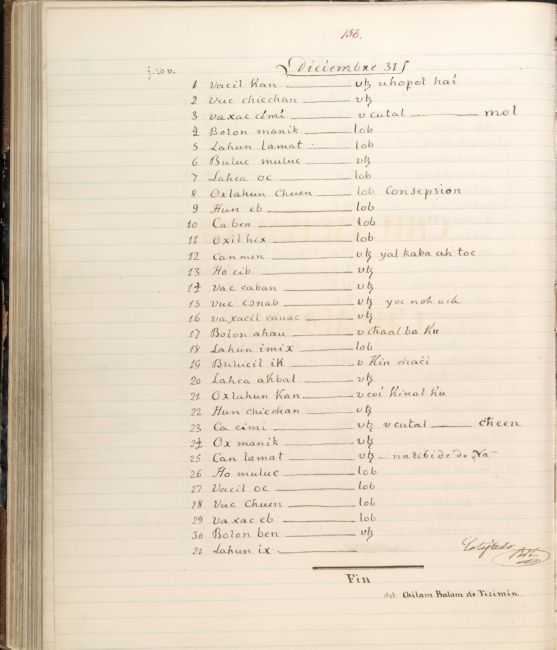 158.
f. 20 v. Diciembre 31
1 vacil Kan uꜩ uhopol hai
2 vuc chicchan uꜩ
3 vaxac cimi u cutal mol
4 Bolon manik lob
5 Lahun lamat lob
6 Buluc muluc uꜩ
7 Lahca oc lob
8 Oxlahun Chuen lob Consepsion
9 Hun eb lob
10 Ca ben lob
11 Oxil hix lob
12 Can men uꜩ yal kaba ah toc
13 Ho cib uꜩ
14 vac caban uꜩ
15 vuc esnab uꜩ yoc noh uch
16 vaxacil cauac uꜩ
17 Bolon ahau u chaal ba Ku
18 Lahun imix lob
19 Bulucil iK u Kin chaci
20 Lahca akbal uꜩ
21 Oxlahun Kan u coi Kinal Ku
22 Hun chicchan uꜩ
23 Ca cimi uꜩ u cutal cheen
24 Ox manik uꜩ
25 Can lamat uꜩ natibidede Na
26 Ho muluc lob
27 Vacil oc lob
28 Vuc Chuen lob
29 vaxac eb lob
30 Bolon ben uꜩ
31 Lahun ix
Cotejado
Fin
del Chilam Balam de Tizimin